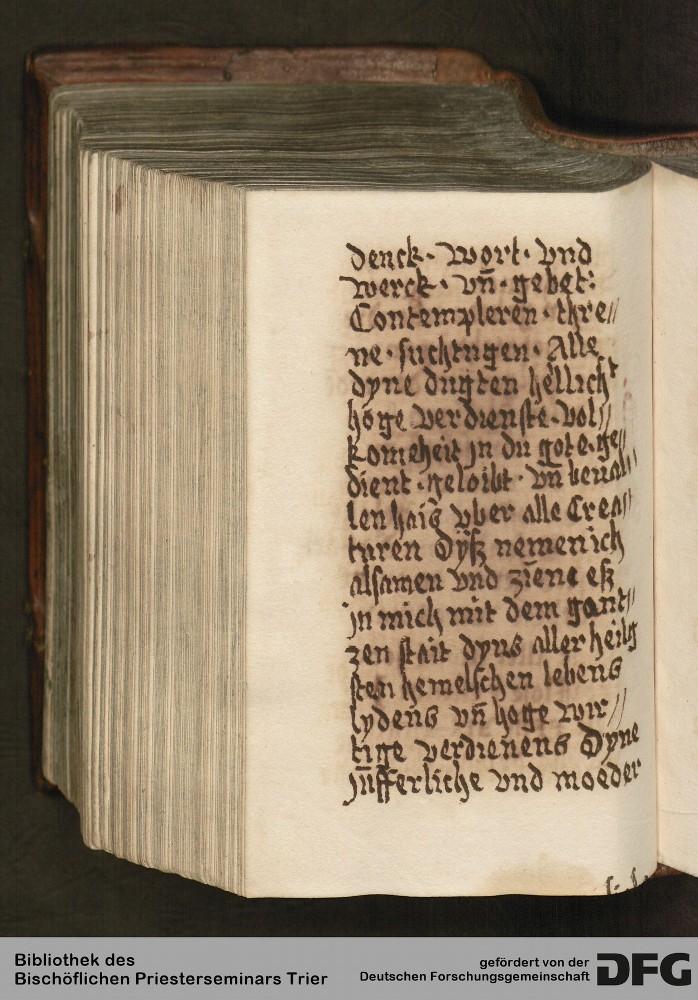 denck · wort · vnd
werck · vn̄ · gebet:
Contempleren̄ · thre//
ne · suchtugen · Alle
dyne dugten hellicht
hoge verdienste · vol//
komeheit jn du gote · ge//
dient · geloibt · vn̄ beual//
len hais vber alle Crea//
turen Dyß nemen ich
alsamen vnd ziene eß
jn mich mit dem gant//
zen stait dyns aller heilig
sten hemelschen lebens
lydens vn̄ hoge wir//
tige verdienens Dyne
jūfferliche vnd moeder
Bibliothek des
Bischöflichen Priesterseminars Trier
gefördert von der
Deutschen Forschungsgemeinschaft
DFG